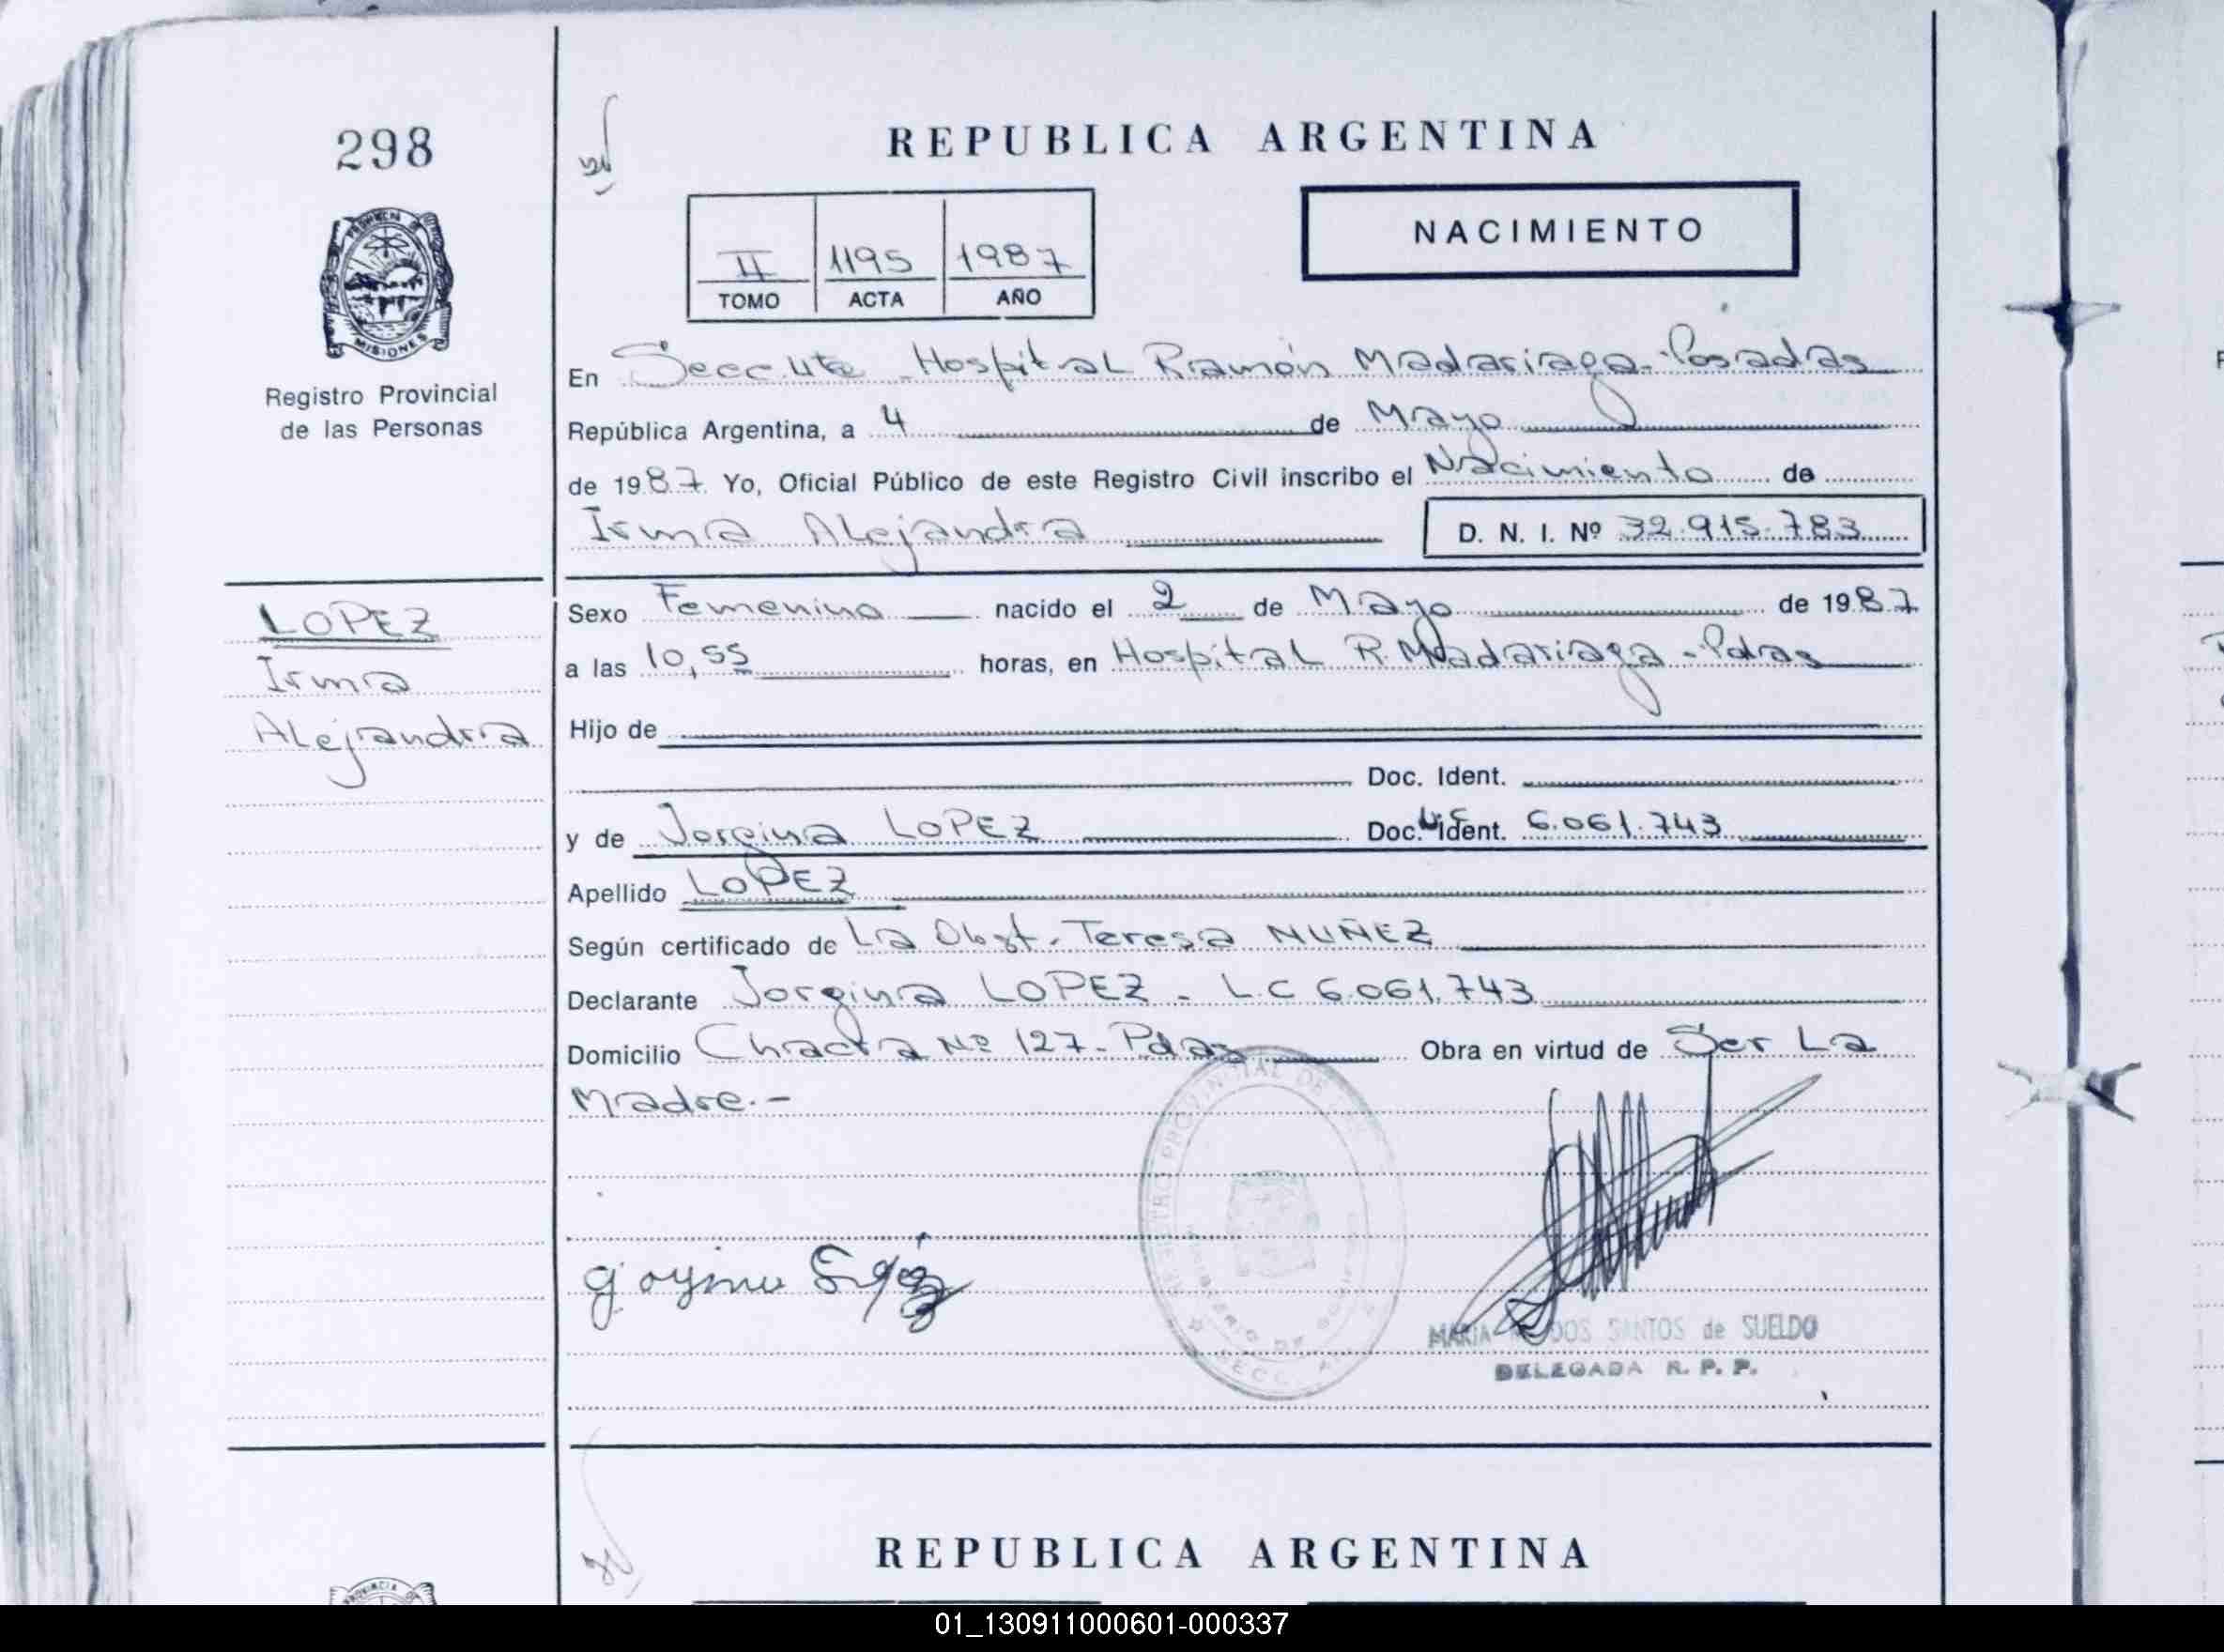 298
REPUBLICA ARGENTINA
NACIMIENTO
II 1195 1987
TOMO ACTA AÑO
PROVINCIA DE
MISIONES
Registro Provincial
de las Personas
En Secc. Hospital Ramón Madariaga - Posadas
República Argentina, a 4 de Mayo
de 1987 Yo, Oficial Público de este Registro Civil inscribo el Nacimiento de
Irma Alejandra D. N. I. Nº 32.915.783
LOPEZ
Irma
Alejandra
Sexo Femenino nacido el 2 de Mayo de 1987
a las 10,55 horas, en Hospital R. Madariaga - Pdas
Hijo de
Doc. Ident.
y de Jorgina LOPEZ Doc. Ident. LC 6.061.743
Apellido LOPEZ
Según certificado de La Obst. Teresa NUÑEZ
Declarante Jorgina LOPEZ - L.C 6.061.743
Domicilio Chacra Nº 127 - Pdas Obra en virtud de Ser La
Madre.-
MARIA DOS SANTOS de SUELDO
DELEGADA R. P. P.
REPUBLICA ARGENTINA
01_130911000601-000337